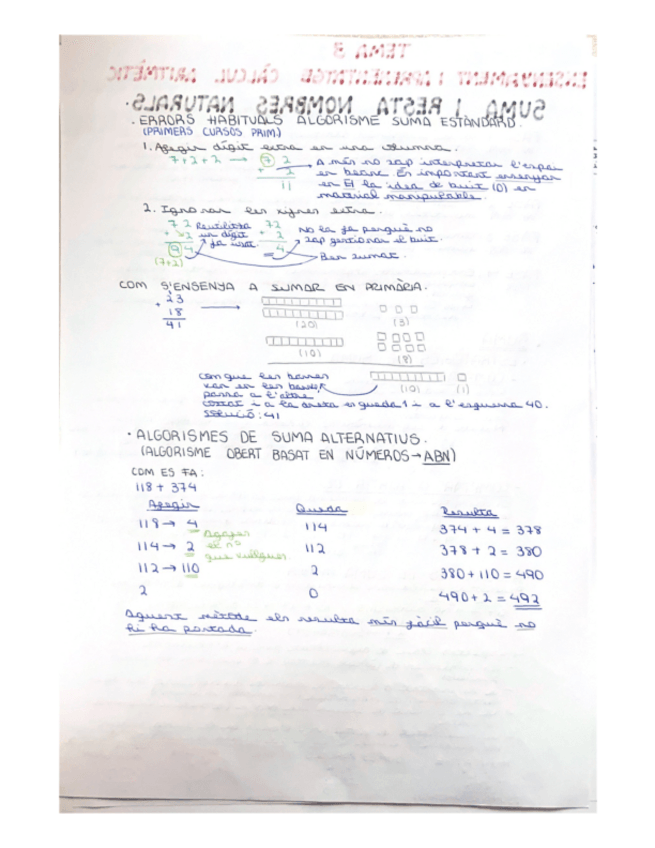 TEMA 3
ENSENYAMENT I APRENENTATGE CÀLCUL ARITMÈTIC
SUMA I RESTA NOMBRES NATURALS
· ERRORS HABITUALS ALGORISME SUMA ESTÀNDARD.
(PRIMERS CURSOS PRIM.)
1. Afegir dígit extra en una columna.
7+2+2 → 7 2
+ 2
11
A més no sap interpretar l'espai
en blanc. És important ensenyar
en EI la idea de buit (0) en
material manipulable.
2. Ignorar les xifres extra.
72
+ 2
94
(7+2)
Reutilitza
un dígit
ja usat.
72
+ 2
4
No la fa perquè no
sap gestionar el buit.
Ben sumat.
COM S'ENSENYA A SUMAR EN PRIMÀRIA.
23
+ 18
41
(20) (3)
(10) (8)
(10) (1)
Com que les barres
van en les barres,
passa a l'altre
costat i a la dreta es queda 1 i a l'esquerra 40.
Solució: 41
· ALGORISMES DE SUMA ALTERNATIUS.
(ALGORISME OBERT BASAT EN NÚMEROS → ABN)
COM ES FA:
118 + 374
Afegir Queda Resulta
118 → 4 114 374 + 4 = 378
Agafes
el nº
que vulgues
114 → 2 112 378 + 2 = 380
112 → 110 2 380 + 110 = 490
2 0 490 + 2 = 492
Aquest mètode els resulta més fàcil perquè no
hi ha portada.